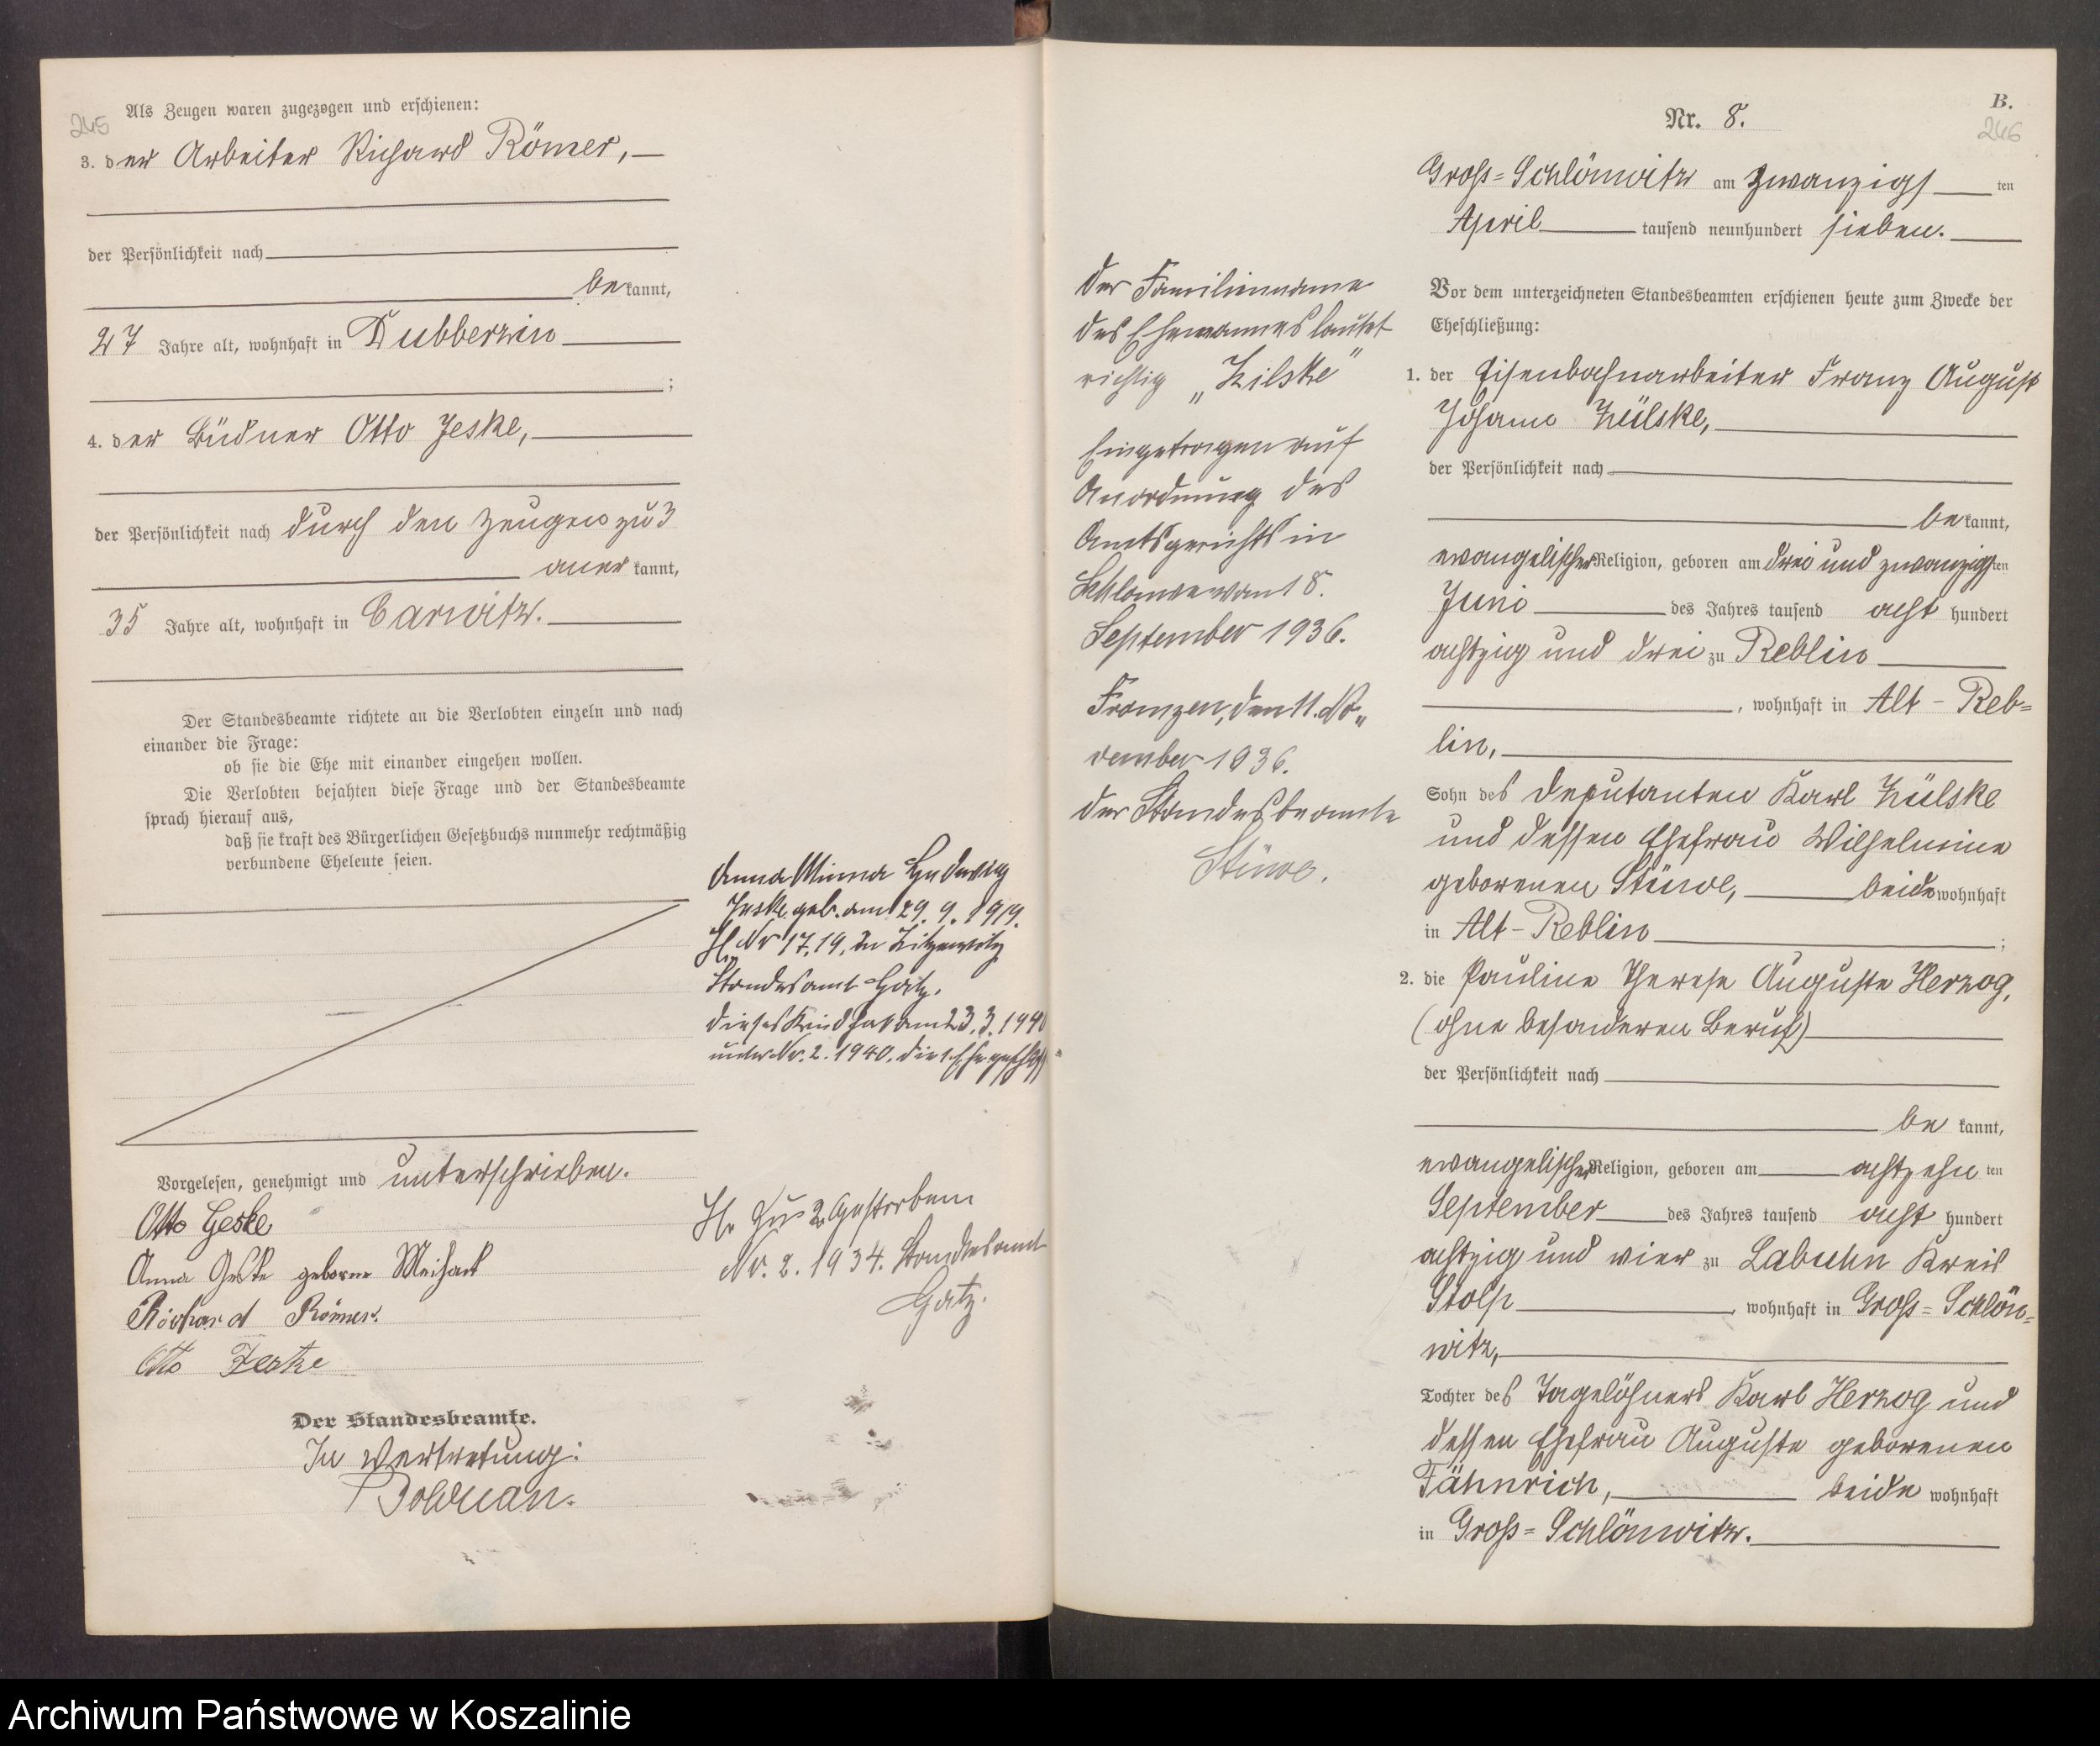 245
Als Zeugen waren zugezogen und erschienen:
3. der Arbeiter Richard Römer,
der Persönlichkeit nach
bekannt,
27 Jahre alt, wohnhaft in Dubberzin
;
4. der Büdner Otto Jeske,
der Persönlichkeit nach durch den Zeugen zu 3
anerkannt,
35 Jahre alt, wohnhaft in Carwitz.
Der Standesbeamte richtete an die Verlobten einzeln und nach
einander die Frage:
ob sie die Ehe mit einander eingehen wollen.
Die Verlobten bejahten diese Frage und der Standesbeamte
sprach hierauf aus,
daß sie kraft des Bürgerlichen Gesetzbuchs nunmehr rechtmäßig
verbundene Eheleute seien.
Vorgelesen, genehmigt und unterschrieben.
Otto Geske
Anna Geske geborne
Richard Römer.
Otto Jeske
Der Standesbeamte.
In Vertretung:
Anna Minna Hedwig
Jeske geb. am 29. 9. 1919.
Nr 17.19. in Zitzewitz
Standesamt Gatz.
dieses Kind hat am 23. 3. 1940
unter Nr. 2. 1940. die 1. Ehe
zu 2 Gestorben
Nr. 2. 1934. Standesamt
Gatz.
B.
246
Nr. 8.
Groß-Schlönwitz am zwanzigsten
April tausend neunhundert sieben.
Vor dem unterzeichneten Standesbeamten erschienen heute zum Zwecke der
Eheschließung:
1. der Eisenbahnarbeiter Franz August
Johann Zülske,
der Persönlichkeit nach
bekannt,
evangelischer Religion, geboren am drei und zwanzigsten
Juni des Jahres tausend acht hundert
achtzig und drei zu Reblin
, wohnhaft in Alt-Reb-
lin,
Sohn des Deputanten Karl Zülske
und dessen Ehefrau Wilhelmine
geborenen Stüwe, beide wohnhaft
in Alt-Reblin ;
2. die Pauline Therese Auguste Herzog,
(ohne besonderen Beruf)
der Persönlichkeit nach
bekannt,
evangelischer Religion, geboren am achtzehnten
September des Jahres tausend acht hundert
achtzig und vier zu Labuhn Kreis
Stolp , wohnhaft in Groß-Schlön-
witz,
Tochter des Tagelöhners Karl Herzog und
dessen Ehefrau Auguste geborenen
Fähnrich, beide wohnhaft
in Groß-Schlönwitz.
Der Familienname
des Ehemannes lautet
richtig „Zilske"
Eingetragen auf
Anordnung des
Amtsgerichts in
Schlawe vom 18.
September 1936.
Franzen, den 11. No-
vember 1936.
Der Standesbeamte
Stüwe.
Archiwum Państwowe w Koszalinie